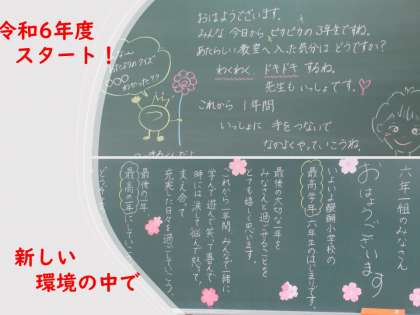 令和6年度
スタート！
おはようございます。
みんな今日からピカピカの3年生ですね。
あたらしい教室へ入った気分はどうですか？
わくわく、ドキドキするね。
先生もいっしょです。
これから1年間
いっしょに手をつないで
なかよくやっていこうね。
六年一組のみなさん
おはようございます
いよいよ醍醐小学校の
最高学年 六年生のはじまりです。
最後の大切な一年を
みなさんと過ごせることを
とても嬉しく思います。
これから一年間、みんなで一緒に
学んで遊んで笑って喜んで
時には涙して悩んで怒って、
支え合って
充実した日々を過ごしていこう。
最後の一年
最高の一年にしていこう
新しい
環境の中で